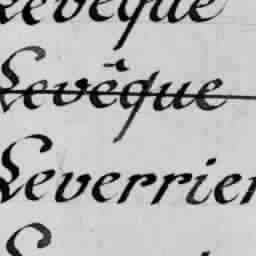 Levêque
Levêque
Leverrier